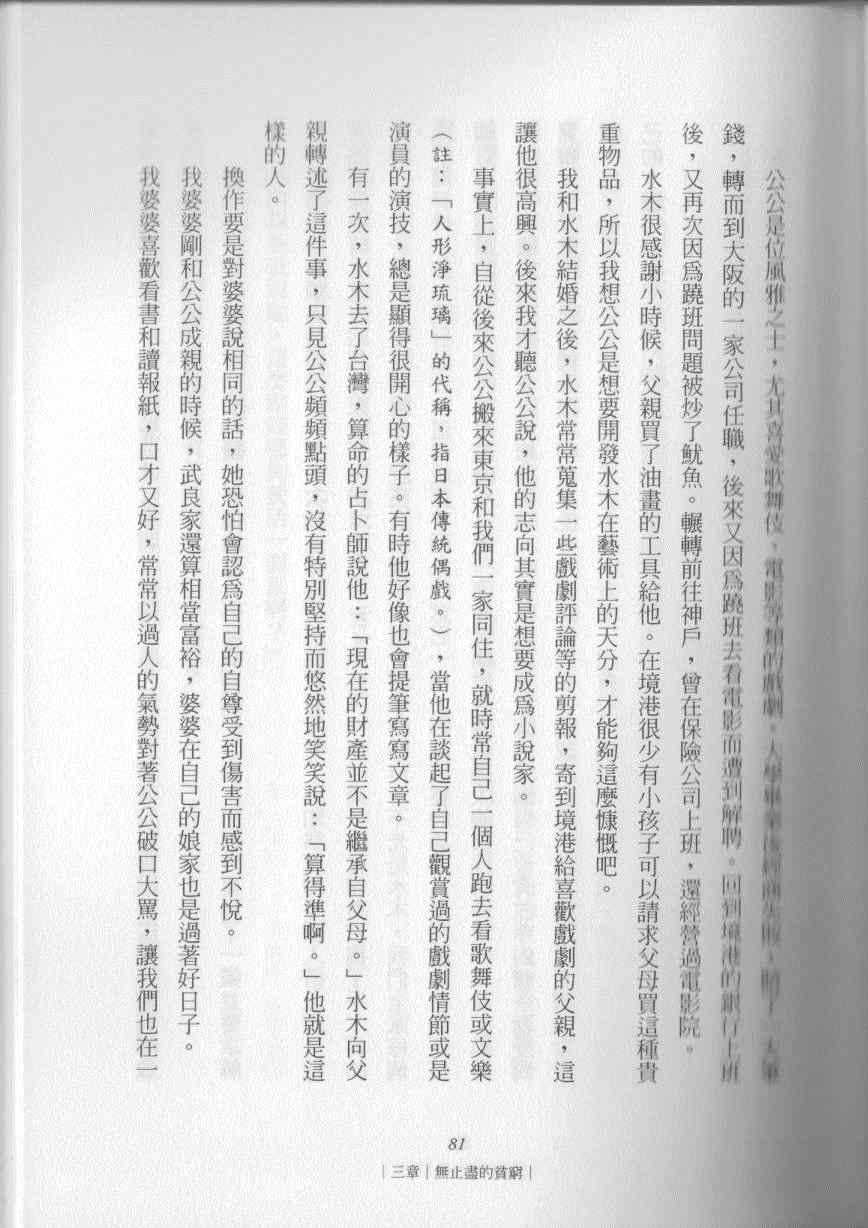 公公是位風雅之士，尤其喜愛歌舞伎、電影等類的戲劇。大學畢業後經商失敗，賠了一大筆
錢，轉而到大阪的一家公司任職，後來又因為蹺班去看電影而遭到解聘。回到境港的銀行上班
後，又再次因為蹺班問題被炒了魷魚。輾轉前往神戶，曾在保險公司上班，還經營過電影院。
水木很感謝小時候，父親買了油畫的工具給他。在境港很少有小孩子可以請求父母買這種貴
重物品，所以我想公公是想要開發水木在藝術上的天分，才能夠這麼慷慨吧。
我和水木結婚之後，水木常常蒐集一些戲劇評論等的剪報，寄到境港給喜歡戲劇的父親，這
讓他很高興。後來我才聽公公說，他的志向其實是想要成為小說家。
事實上，自從後來公公搬來東京和我們一家同住，就時常自己一個人跑去看歌舞伎或文樂
（註：「人形淨琉璃」的代稱，指日本傳統偶戲。），當他在談起了自己觀賞過的戲劇情節或是
演員的演技，總是顯得很開心的樣子。有時他好像也會提筆寫寫文章。
有一次，水木去了台灣，算命的占卜師說他：「現在的財產並不是繼承自父母。」水木向父
親轉述了這件事，只見公公頻頻點頭，沒有特別堅持而悠然地笑笑說：「算得準啊。」他就是這
樣的人。
換作要是對婆婆說相同的話，她恐怕會認為自己的自尊受到傷害而感到不悅。
我婆婆剛和公公成親的時候，武良家還算相當富裕，婆婆在自己的娘家也是過著好日子。
我婆婆喜歡看書和讀報紙，口才又好，常常以過人的氣勢對著公公破口大罵，讓我們也在一
81
｜三章｜無止盡的貧窮｜